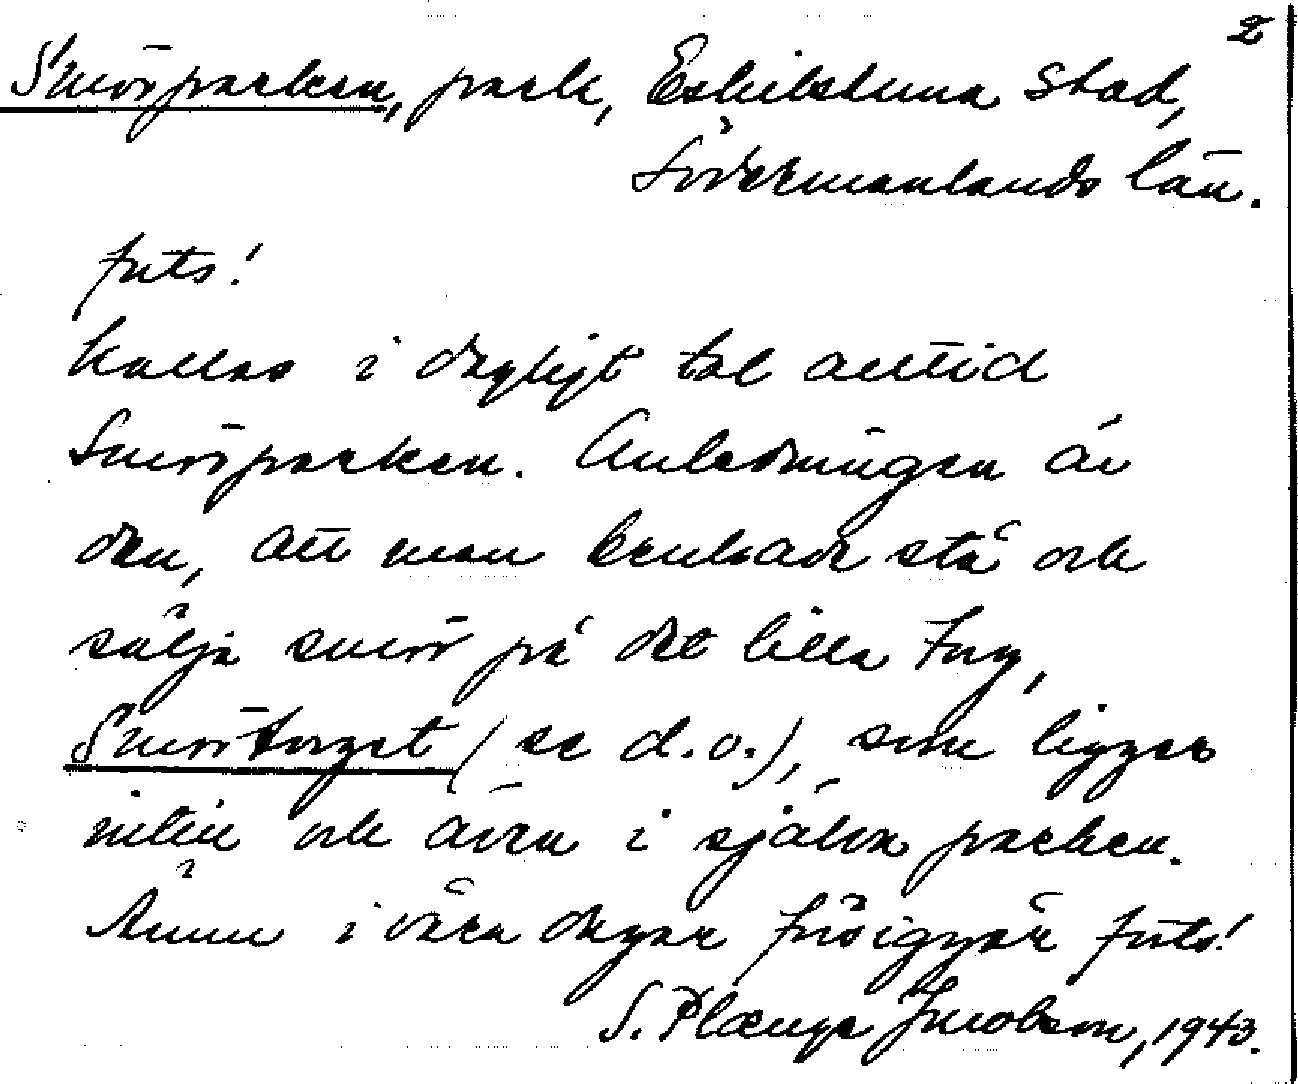 2
Smörparken, park, Eskilstuna stad,
Södermanlands län.
forts!
kallas i dagligt tal alltid
Smörparken. Anledningen är
den, att man brukade stå och
sälja smör på det lilla torg,
Smörtorget (se d.o.), som ligger
intill och även i själva parken.
Ännu i våra dagar försiggår forts!
S. Plænge Jacobson, 1943.